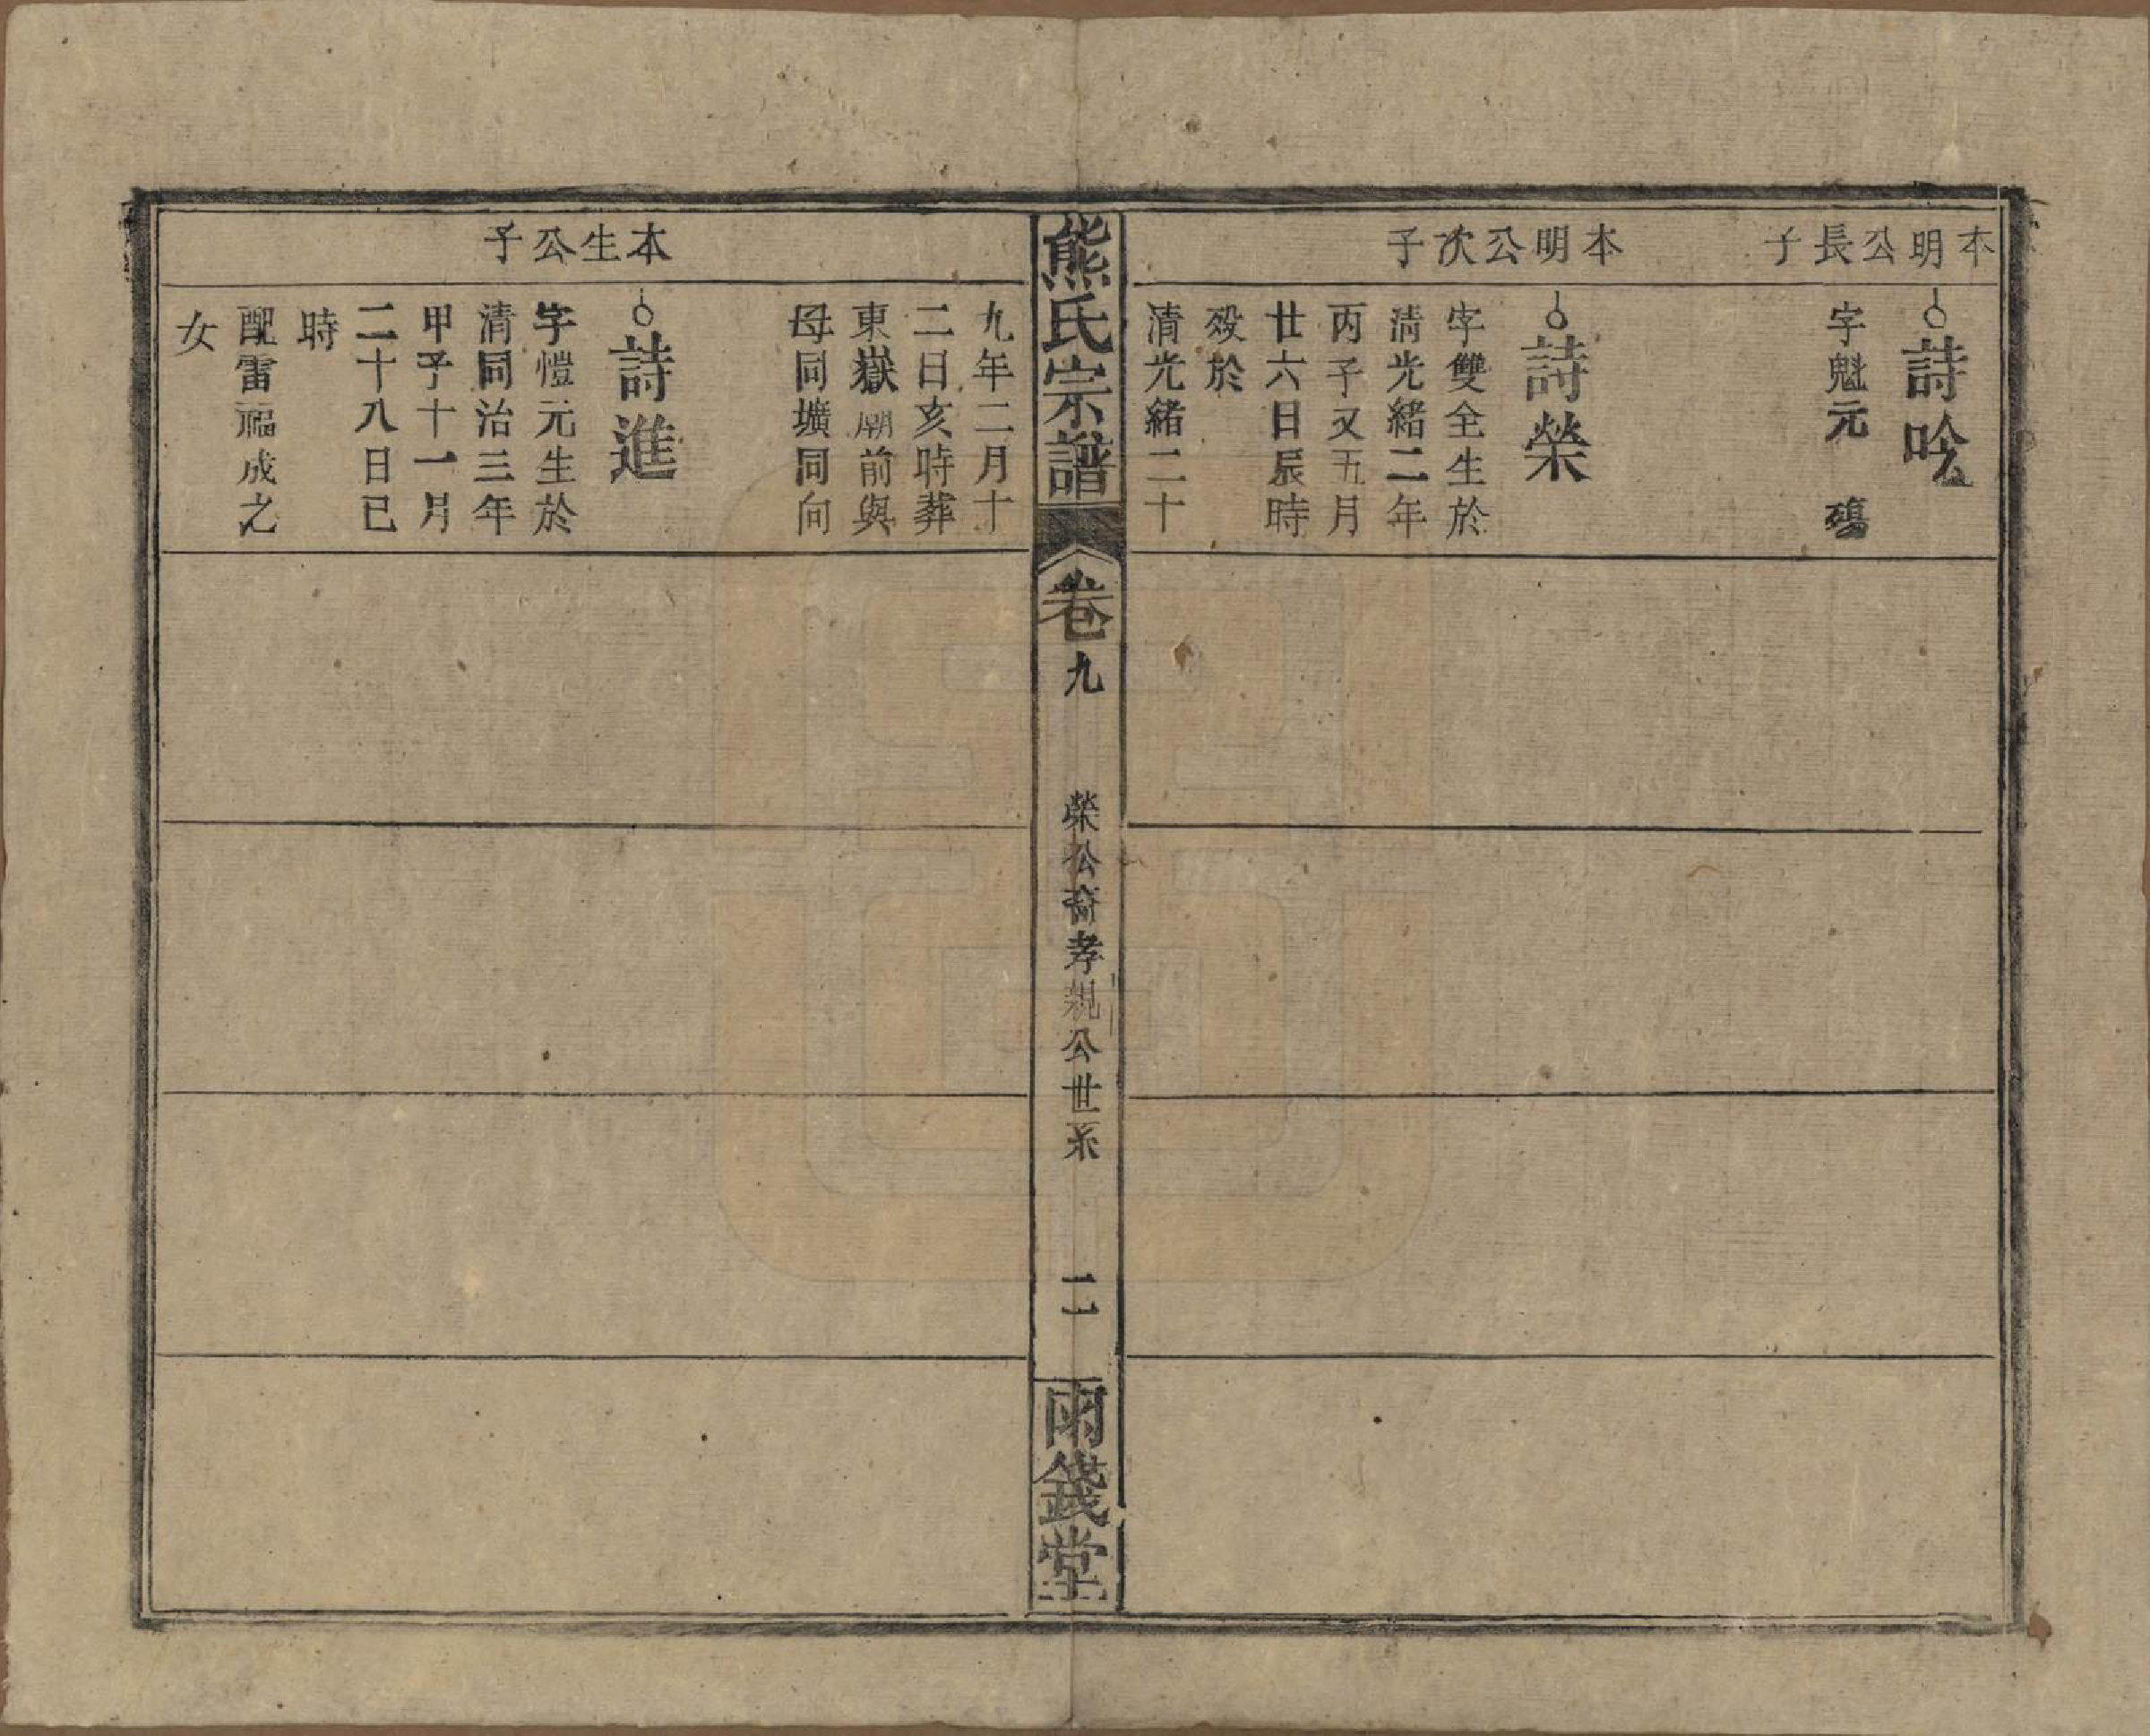 本明公長子
詩吟
字魁元　殤
本明公次子
詩榮
字雙全生於
清光緒二年
丙子又五月
廿六日辰時
歿於
清光緒二十
熊氏宗譜
卷九
榮公裔孝親公世系
二
雨錢堂
九年二月十
二日亥時葬
東嶽廟前與
母同壙同向
本生公子
詩進
字愷元生於
清同治三年
甲子十一月
二十八日已
時
配雷福成之
女